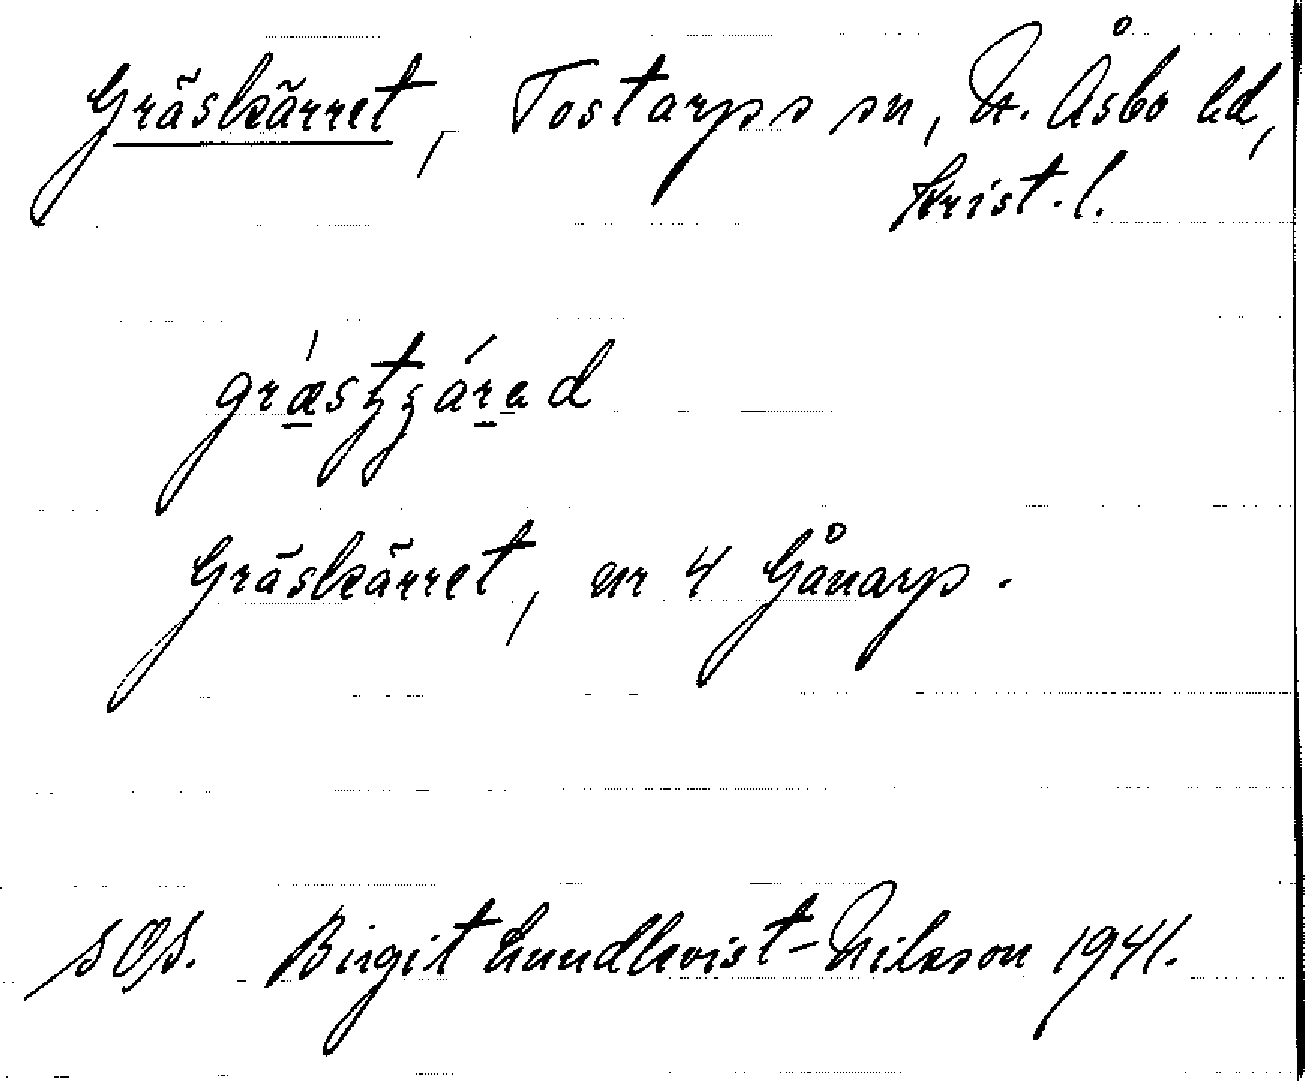 Gräskärret, Tostarps sn, N. Åsbo hd,
Krist. l.
Gräskärret, nr 4 Gånarp.
SOS. Birgit Lundkvist-Nilsson 1941.